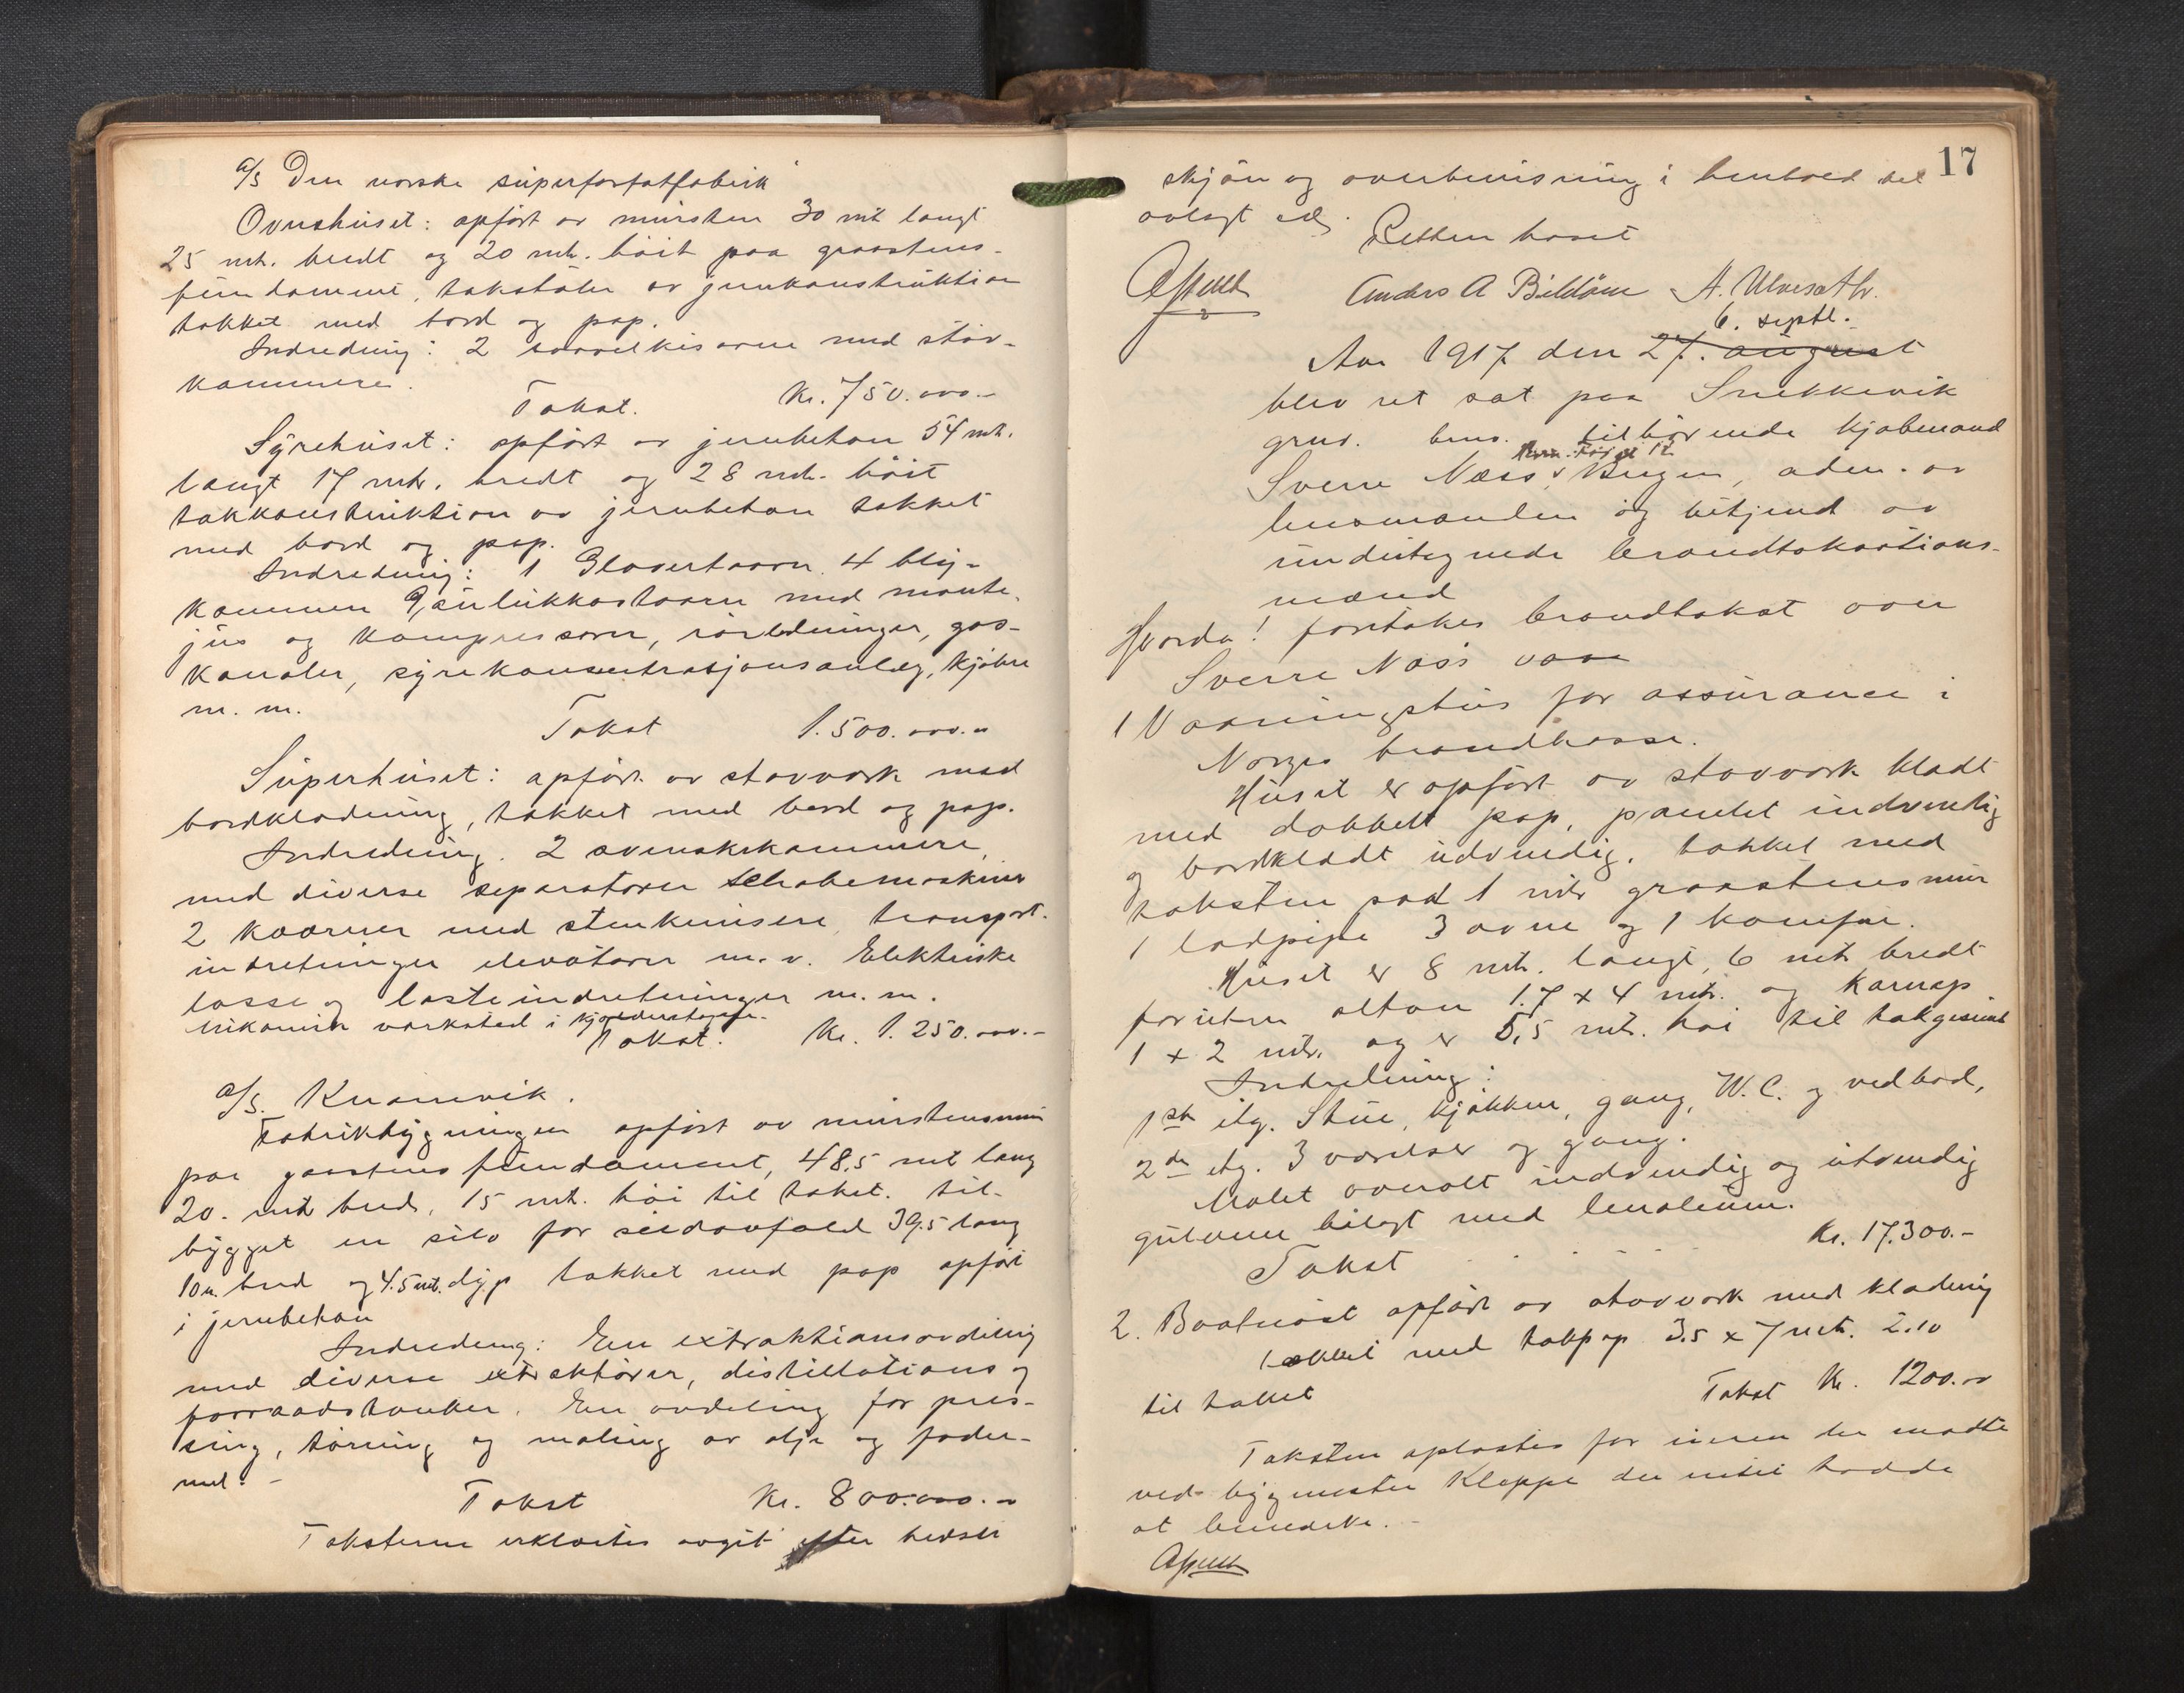 a/s Den norske superfosfatfabrik
Ovnshuset: opført av mursten 30 mt langt
25 mtr. bredt og 20 mtr. høit paa graastens-
fundament, takstoler av jernkonstruktion
tækket med bord og pap.
Indredning: 2 svovelkisovne med støv-
kammere.
Takst. Kr. 750.000.-
Syrehuset: opført av jernbeton 54 mtr.
langt 17 mtr. bredt og 28 mtr. høit
takkonstruktion av jernbeton tækket
med bord og pap.
Indredning: 1 Glovertaarn. 4 bly-
kammer Gaylukkastaarn med monte-
jus og kompressorer, rørledninger, gas-
kanaler, syrekonsentrasjonsanlæg, kjølere
m. m.
Takst 1.500.000.-
Superhuset: opført av stavverk med
bordklædning, tækket med bord og pap.
Indredning. 2 svenskekammere,
med diverse separatorer schabemaskiner
2 kværner med stenknusere, transport-
indretninger elevatorer m.v. Elektriske
losse og lasteindretninger m.m.
Mekanisk verksted i kjelderetagen.
Takst. Kr. 1.250.000.-
a/s. Knarrevik.
Fabrikbygningen opført av murstensmur
paa graastens fundament, 48,5 mtr lang
20. mtr bred, 15 mtr. høi til taket. til-
bygget en silo for sildavfald 39.5 lang
10 m. bred og 4.5 mt. dyp tækket med pap opført
i jernbeton
Indredning: En extraktionsavdeling
med diverse extraktører, distillations og
forraadstanker. En avdeling for pres-
sing, tørring og maling av olje og foder-
mel. -
Takst Kr. 800.000.-
Taksterne erklærtes avgit efter bedste
17
skjøn og overbevisning i henhold til
avlagt ed.
Retten hævet
Anders A Bildøen A. Ulvesæth.
6. septl.
Aar 1917 den 27. august
blev ret sat paa Snekkevik
grnr. bnr. tilhørende kjøbmand
Sverre Næss, Bergen, adm. av
lensmanden og betjent av
undertegnede brandtakstions-
mænd
Hvorda! foretakes brandtakst over
Sverre Næss vaan
1 Vaaningshus for assurance i
Norges brandkasse.
Huset er opført av stavverk klædt
med dobbelt pap, panelet indvendig
og bordklædt udvendig, tækket med
taksten paa 1 mtr graastensmur
1 ladpipe 3 ovne og 1 komfur.
Huset er 8 mtr. langt, 6 mtr bredt
foruten altan 1.7 x 4 mtr. og karnap
1 x 2 mtr. og er 5,5 mtr. høi til takgesimt
Indredning:
1ste etg. Stue, kjøkken, gang, W.C. og vedbod,
2de etg. 3 værelser og gang.
Malet overalt indvendig og utvendig
gulvene belagt med linoleum.
Takst Kr. 17.300.-
2. Baatnøst opført av stavverk med klædning
tækket med takpap 3.5 x 7 mtr. 2.10
til taket Takst Kr. 1200.-
Taksten oplæstes for eieren der mødte
ved bygmester Kleppe der intet hadde
at bemerke. -